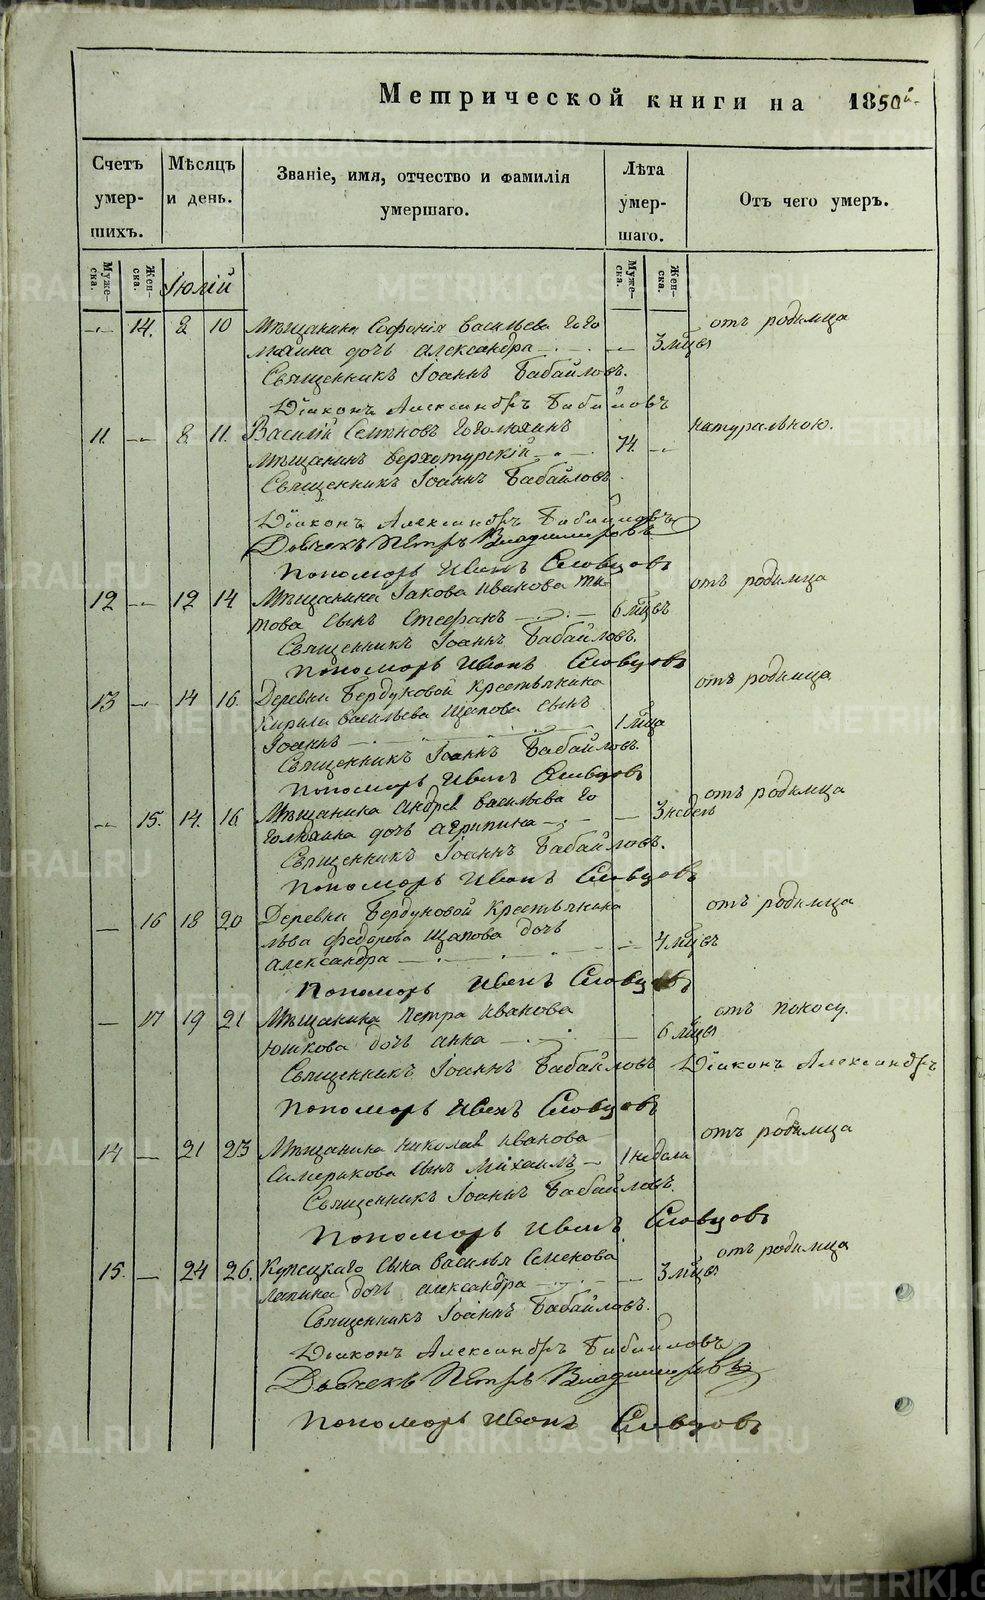 Метрической книги на 1850й.
Счетъ умер-шихъ.
Мѣсяцъ и день.
Званіе, имя, отчество и фамилія умершаго.
Лѣта умер-шаго.
Отъ чего умеръ.
Муже-ска. Жен-ска. Іюлій Муже-ска. Жен-ска.
14. 8 10 Мѣщанина Софонія Васильева Гого отъ родимца
люхина дочь Александра 3 мѣцъ
Священникъ Іоаннъ Бабайловъ.
Діаконъ Александръ Бабайловъ
11. 8. 11. Василій Семеновъ Гоголюхинъ натуральною.
Мѣщанинъ Верхотурскій 74.
Священникъ Іоаннъ Бабайловъ.
Діаконъ Александръ Бабайловъ
Дьячекъ Петръ Владимировъ
Пономорь Иванъ Словцовъ
12 12 14 Мѣщанина Іакова Иванова Ти- отъ родимца
това сынъ Стефанъ 6 мѣцъ
Священникъ Іоаннъ Бабайловъ.
Пономорь Иванъ Словцовъ
13 14 16. Деревни Бердуковой Крестьянина отъ родимца
Кирила Васильева Щапова сынъ
Іоаннъ 1 мца
Священникъ Іоаннъ Бабайловъ.
Пономорь Иванъ Словцовъ
15. 14. 16. Мѣщанина Андрея Васильева Го отъ родимца
голюхина дочь Агрипина 3 недель
Священникъ Іоаннъ Бабайловъ.
Пономорь Иванъ Словцовъ
16 18 20 Деревни Бердуковой Крестьянина отъ родимца
Льва Федорова Щапова дочь
Александра 4 мѣцъ
Пономорь Иванъ Словцовъ
17 19 21 Мѣщанина Петра Иванова отъ поносу.
Юшкова дочь Анна 6 мѣцъ
Священникъ Іоаннъ Бабайловъ Діаконъ Александръ
Пономорь Иванъ Словцовъ
14 21 23 Мѣщанина Николая Иванова отъ родимца
сынъ Михаилъ 1 недели
Священникъ Іоаннъ Бабайловъ.
Пономорь Иванъ Словцовъ
15. 24 26. Купецкаго сына Василья Семенова отъ родимца
Лапина дочь Александра 3 мѣцъ
Священникъ Іоаннъ Бабайловъ.
Діаконъ Александръ Бабайловъ
Дьячекъ Петръ Владимировъ
Пономорь Иванъ Словцовъ
METRIKI.GASO-URAL.RU